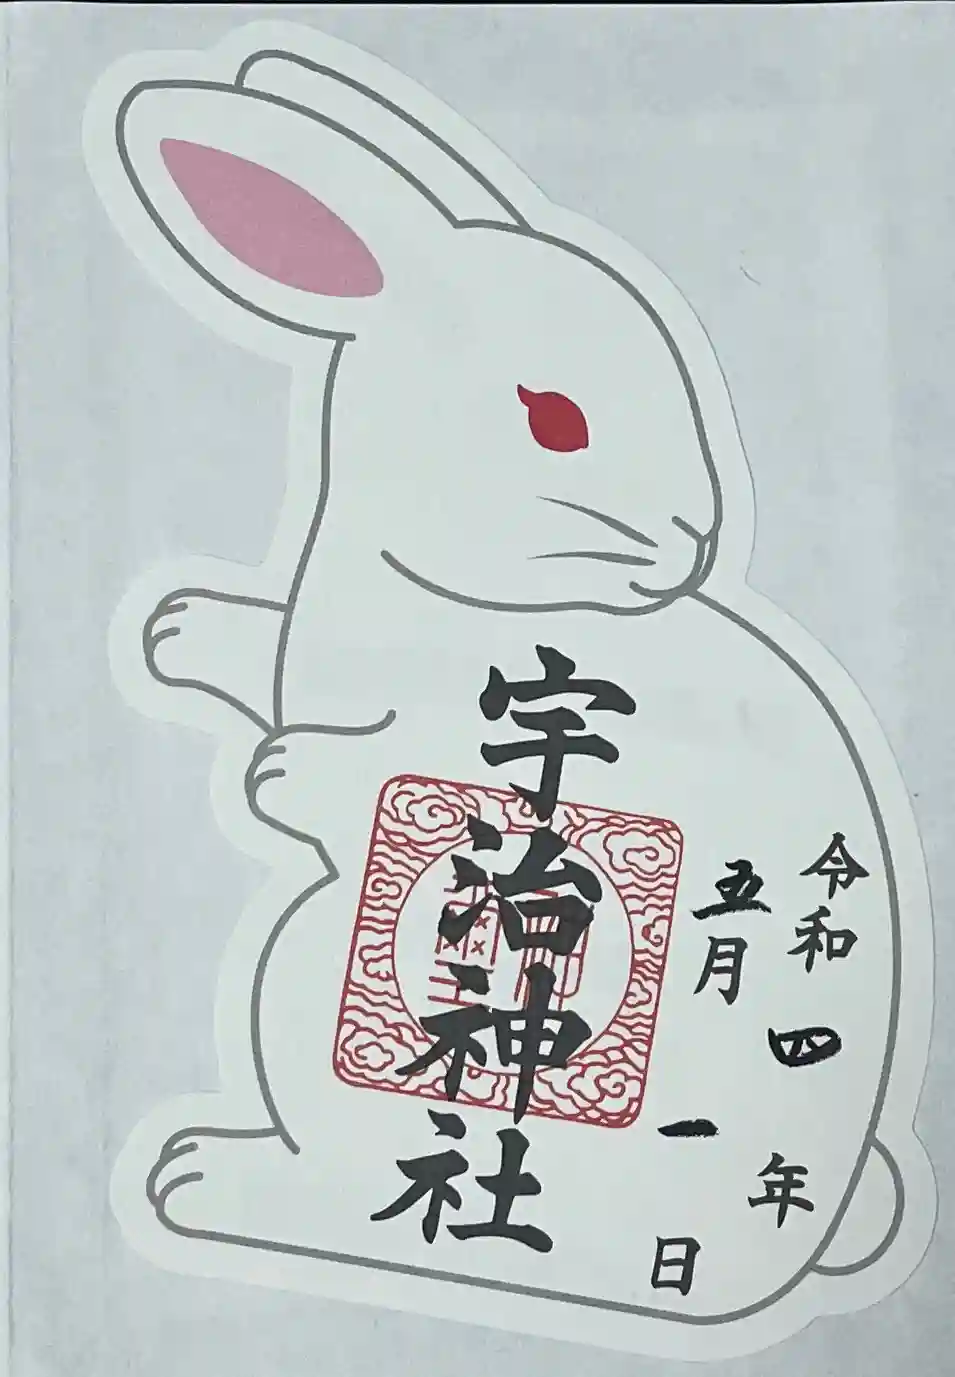 令和四年
五月一日
宇治神社